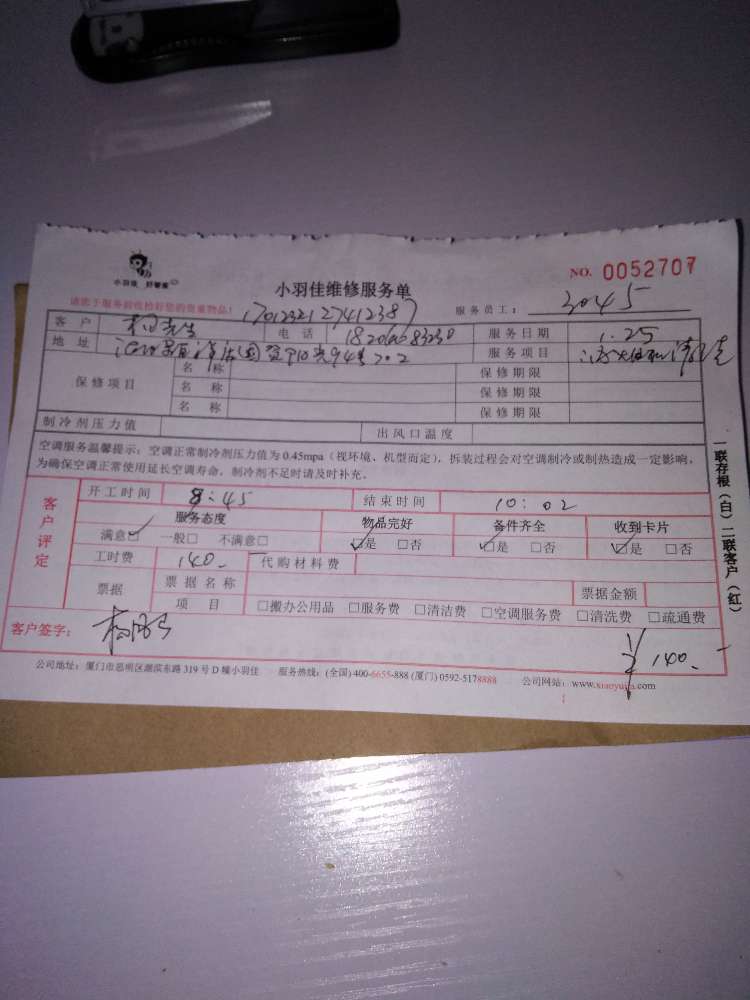 小羽佳 好帮家
小羽佳维修服务单
NO. 0052707
请您于服务前收检好您的贵重物品!
1701232127412387
服务员工: 3045
客户 先生 电话 服务日期 1.25
地址 服务项目
保修项目 名称 保修期限
名称 保修期限
名称 保修期限
制冷剂压力值 出风口温度
空调服务温馨提示:空调正常制冷剂压力值为0.45mpa(视环境、机型而定),拆装过程会对空调制冷或制热造成一定影响,
为确保空调正常使用延长空调寿命,制冷剂不足时请及时补充。
客户评定
开工时间 8:45 结束时间 10:02
服务态度 物品完好 备件齐全 收到卡片
满意☑ 一般□ 不满意□ ☑是 □否 ☑是 □否 ☑是 □否
工时费 140.- 代购材料费
票据 票据名称 票据金额
项目 □搬办公用品 □服务费 □清洁费 □空调服务费 □清洗费 □疏通费
客户签字:
¥140.-
公司地址:厦门市思明区湖滨东路319号D幢小羽佳 服务热线:(全国)400-6655-888 (厦门)0592-5178888 公司网站:www.xiaoyujia.com
一联存根(白)二联客户(红)